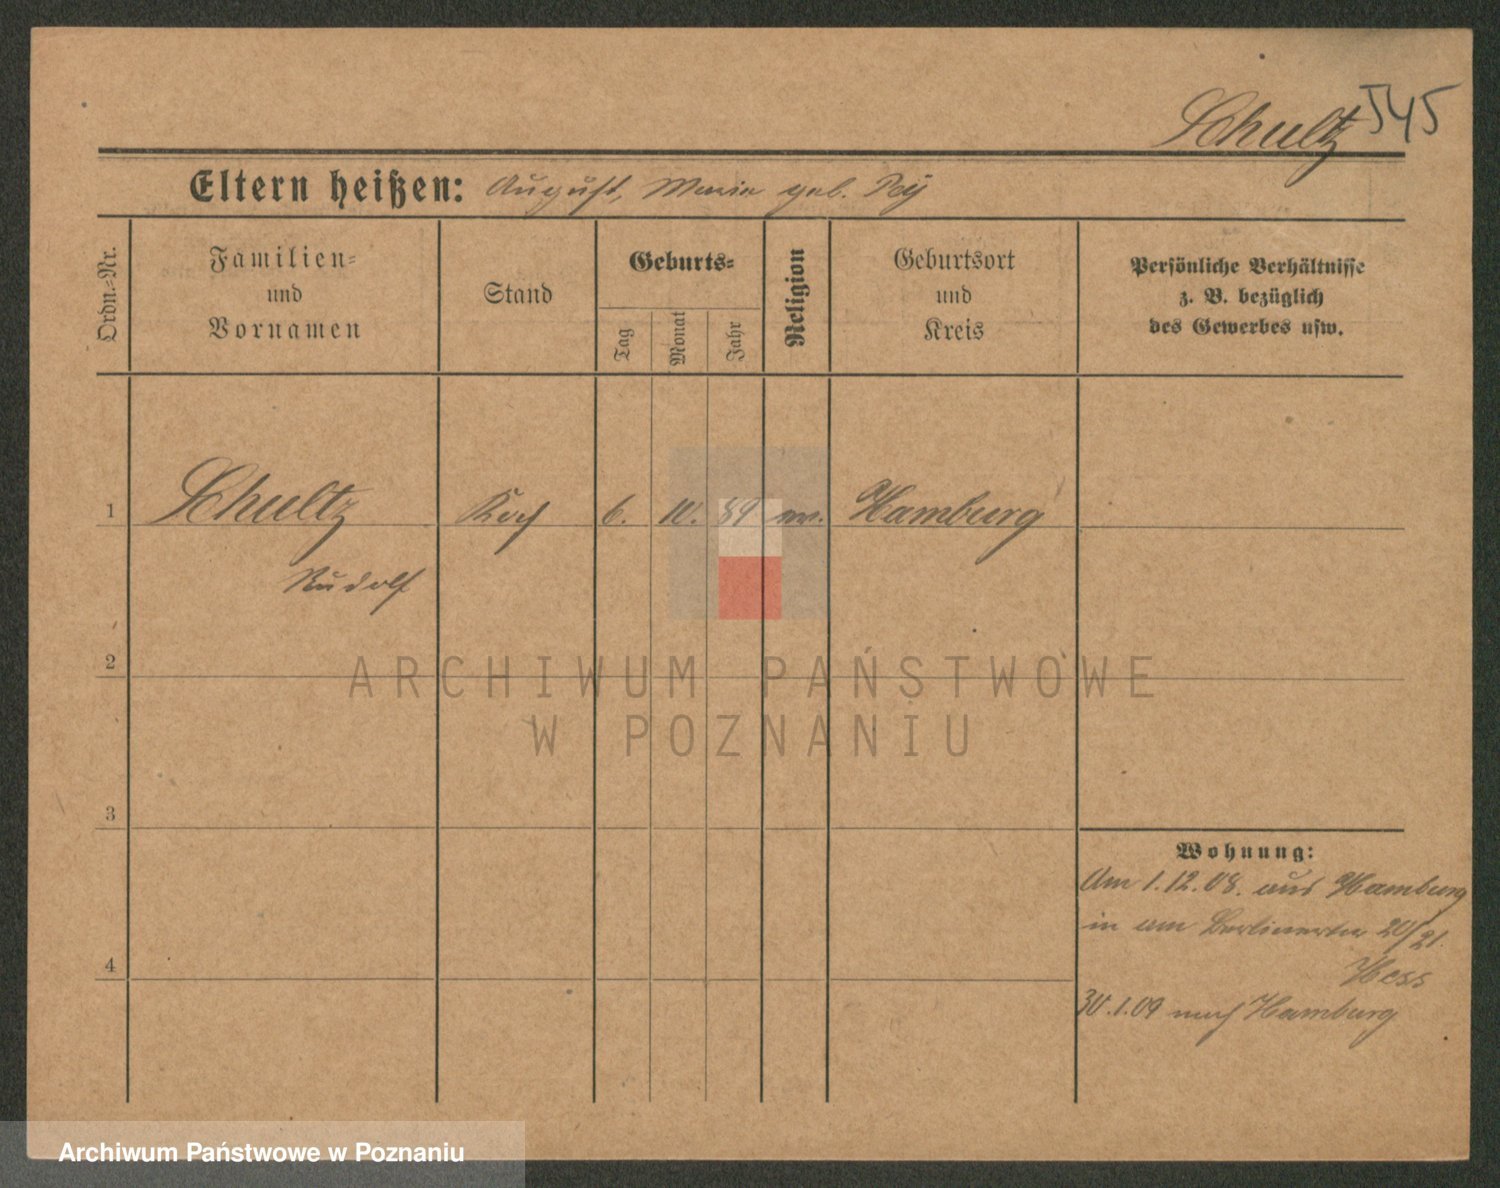 Schultz 545
Eltern heißen: August, Marie geb.
Ordn.-Nr.
Familien-
und
Vornamen
Stand
Geburts-
Tag
Monat
Jahr
Religion
Geburtsort
und
Kreis
Persönliche Verhältnisse
z. B. bezüglich
des Gewerbes usw.
1 Schultz Koch 6. 10. 89 ev. Hamburg
Rudolf
2
3
4
Wohnung:
Am 1.12.08. aus Hamburg
in am Berlinerstr 20/21.
Hess
30.1.09 nach Hamburg
ARCHIWUM PAŃSTWOWE
W POZNANIU
Archiwum Państwowe w Poznaniu